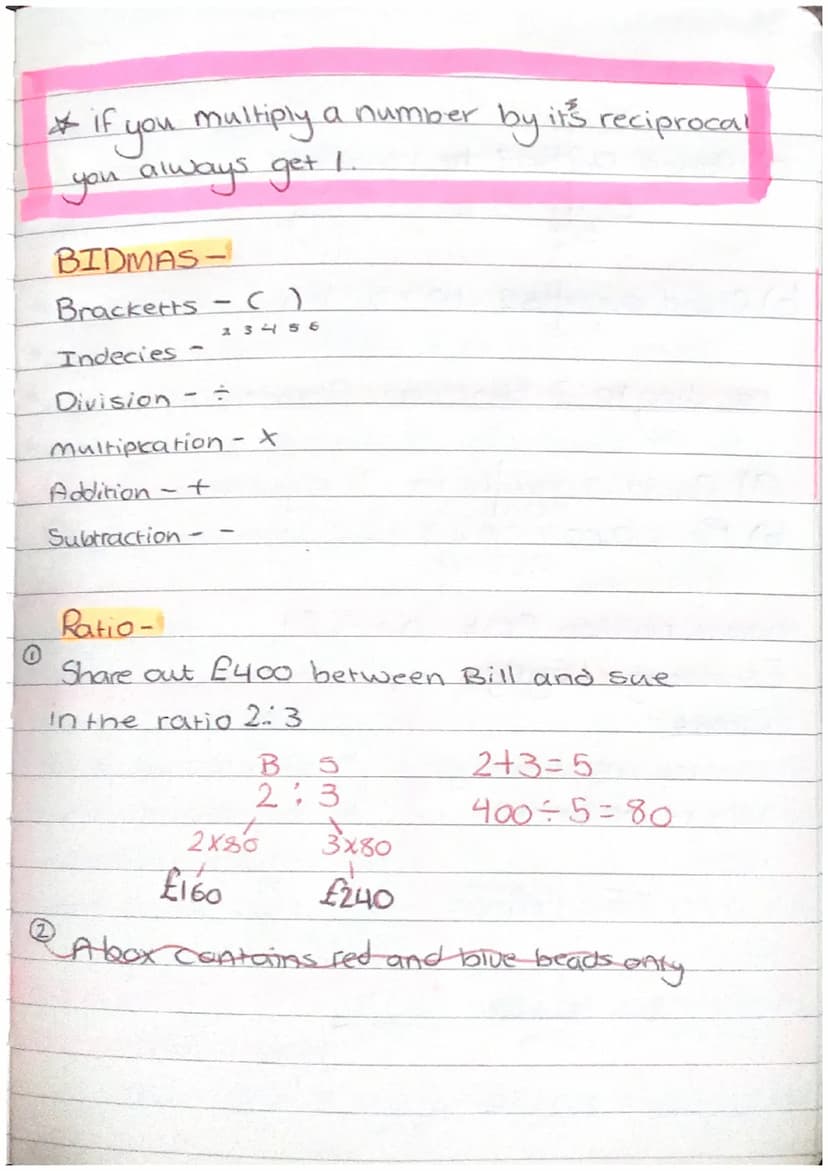 * if you multiply a number by it's reciprocal
you always get 1.
BIDMAS -
Bracketts - ( )
2 3 4 5 6
Indecies -
Division - ÷
Multiplication - ×
Addition - +
Subtraction - -
Ratio -
①
Share out £400 between Bill and sue
in the ratio 2:3
B S 2+3=5
2 : 3 400÷5=80
2×80 3×80
£160 £240
②
A box contains red and blue beads only